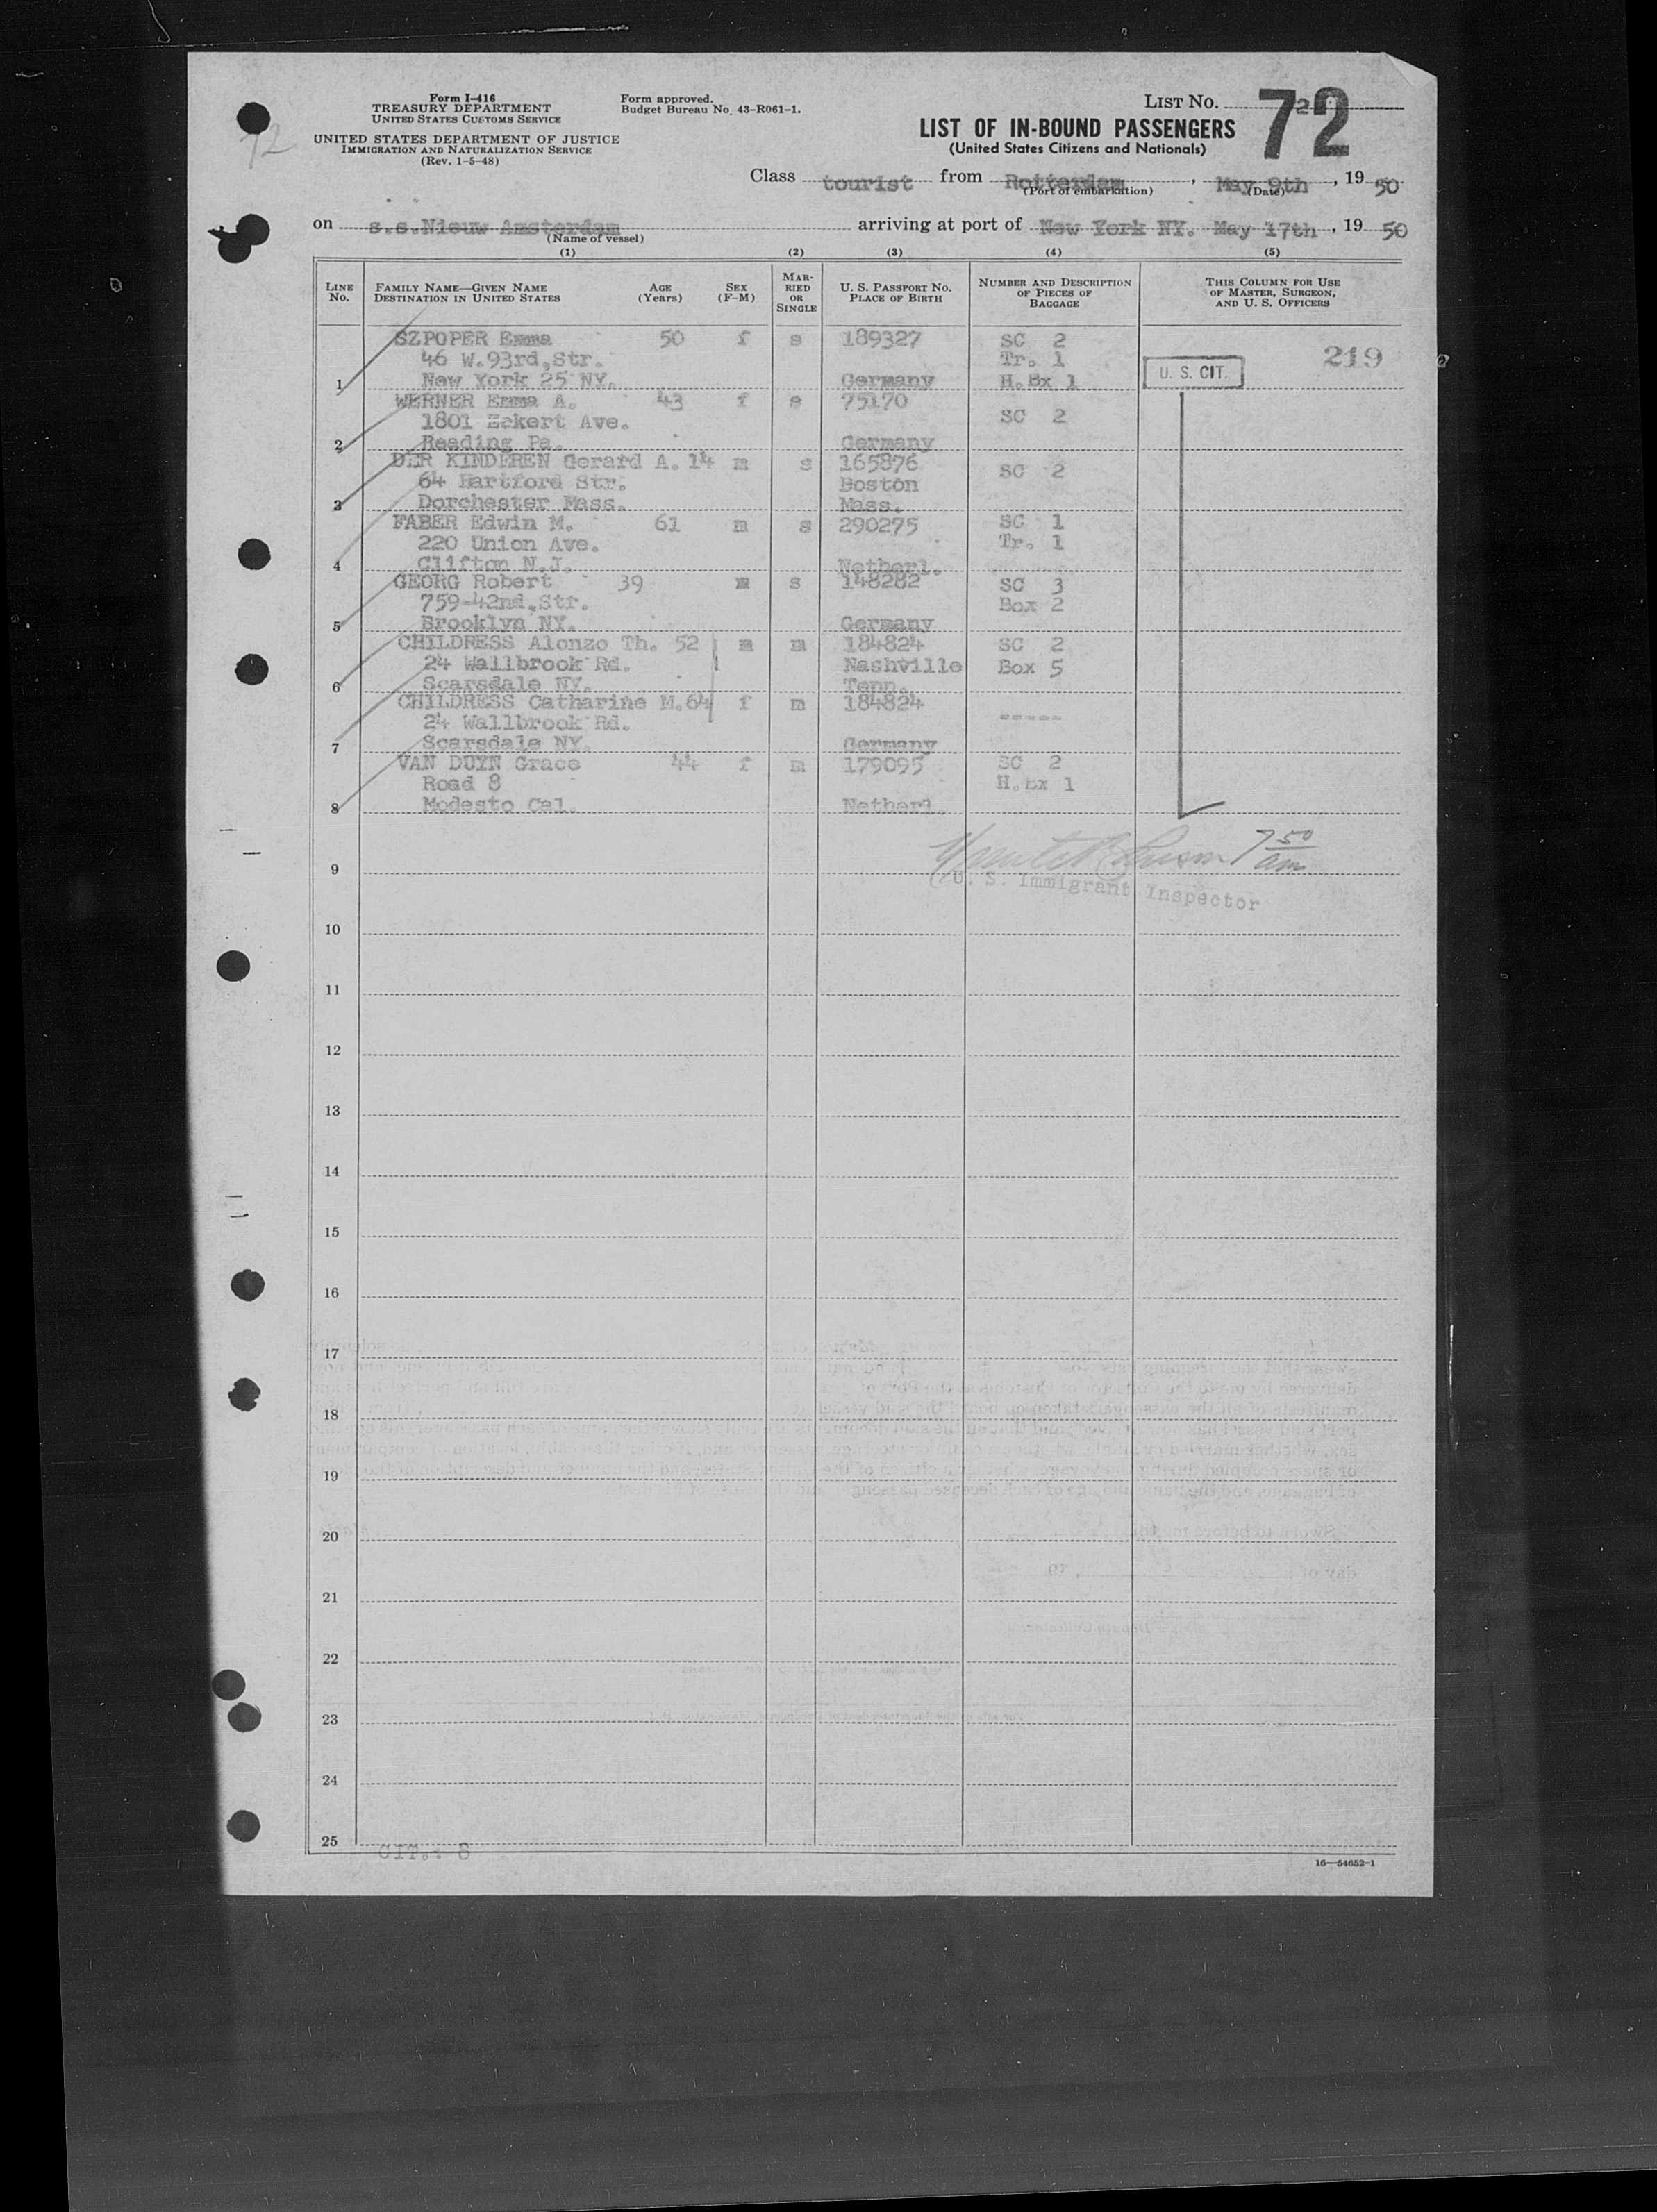 Form I-416
TREASURY DEPARTMENT
UNITED STATES CUSTOMS SERVICE
UNITED STATES DEPARTMENT OF JUSTICE
IMMIGRATION AND NATURALIZATION SERVICE
(Rev. 1-5-48)
Form approved.
Budget Bureau No. 43-R061-1.
LIST NO. 2
72
72
LIST OF IN-BOUND PASSENGERS
(United States Citizens and Nationals)
Class tourist from Rotterdam, May 9th, 19 50
(Port of embarkation) (Date)
on s.s.Nieuw Amsterdam arriving at port of New York NY. May 17th, 19 50
(Name of vessel)
(1) (2) (3) (4) (5)
LINE No. FAMILY NAME—GIVEN NAME DESTINATION IN UNITED STATES AGE (Years) SEX (F-M) MARRIED OR SINGLE U. S. PASSPORT No. PLACE OF BIRTH NUMBER AND DESCRIPTION OF PIECES OF BAGGAGE THIS COLUMN FOR USE OF MASTER, SURGEON, AND U. S. OFFICERS
SZPOPER Emma 50 f s 189327 SC 2 219
46 W.93rd,Str. Tr. 1 U. S. CIT.
1 New York 25 NY. Germany H.Bx 1
WERNER Emma A. 43 f s 75170
1801 Eckert Ave. SC 2
2 Reading Pa. Germany
DER KINDEREN Gerard A. 14 m s 165876 SC 2
64 Hartford Str. Boston
3 Dorchester Mass. Mass.
FABER Edwin M. 61 m s 290275 SC 1
220 Union Ave. Tr. 1
4 Clifton N.J. Netherl.
GEORG Robert 39 m s 148282 SC 3
759-42nd,Str. Box 2
5 Brooklyn NY. Germany
CHILDRESS Alonzo Th. 52 m m 184824 SC 2
24 Wallbrook Rd. Nashville Box 5
6 Scarsdale NY. Tenn.
CHILDRESS Catharine M.64 f m 184824 -----
24 Wallbrook Rd.
7 Scarsdale NY. Germany
VAN DUYN Grace 44 f m 179095 SC 2
Road 8 H.Bx 1
8 Modesto Cal. Netherl.
7 50 am
9
U. S. Immigrant Inspector
10
11
12
13
14
15
16
17
18
19
20
21
22
23
24
25
CIT.: 8
16—54652-1